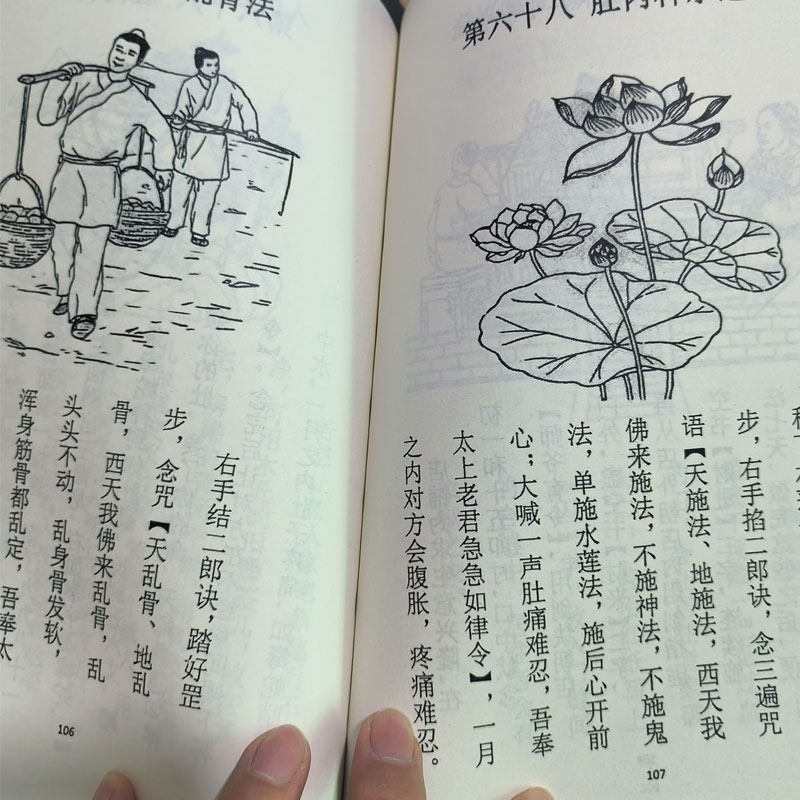 骨法
右手结二郎诀，踏好罡
步，念咒【天乱骨、地乱
骨，西天我佛来乱骨，乱
头头不动，乱身骨发软，
浑身筋骨都乱定，吾奉太
106
第六十八 肚内
步，右手掐二郎诀，念三遍咒
语【天施法、地施法，西天我
佛来施法，不施神法，不施鬼
法，单施水莲法，施后心开前
心；大喊一声肚痛难忍，吾奉
太上老君急急如律令】，一月
之内对方会腹胀，疼痛难忍。
107